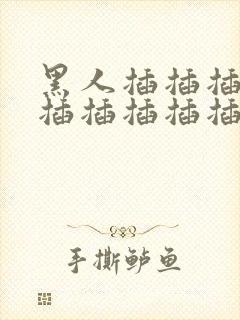 黑人插插插
插插插插插
手撕鲈鱼